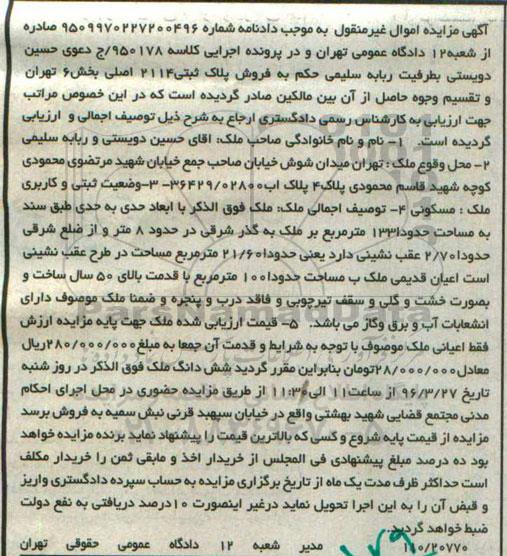 آگهی مزایده اموال غیرمنقول به موجب دادنامه شماره ۹۵۰۹۹۷۰۲۲۷۲۰۰۴۹۶ صادره
از شعبه۱۲ دادگاه عمومی تهران و در پرونده اجرایی کلاسه ۹۵۰۱۷۸/ج دعوی حسین
دویستی بطرفیت ربابه سلیمی حکم به فروش پلاک ثبتی۲۱۱۴ اصلی بخش۶ تهران
و تقسیم وجوه حاصل از آن بین مالکین صادر گردیده است که در این خصوص مراتب
جهت ارزیابی به کارشناس رسمی دادگستری ارجاع به شرح ذیل توصیف اجمالی و ارزیابی
گردیده است. ۱- نام و نام خانوادگی صاحب ملک: اقای حسین دویستی و ربابه سلیمی
۲- محل وقوع ملک : تهران میدان شوش خیابان صاحب جمع خیابان شهید مرتضوی محمودی
کوچه شهید قاسم محمودی پلاک۴ پلاک اب۳۶۴۲۹/۰۲۸۰۰- ۳-وضعیت ثبتی و کاربری
ملک : مسکونی ۴- توصیف اجمالی ملک: ملک فوق الذکر با ابعاد حدی به حدی طبق سند
به مساحت حدودا۱۳۳ مترمربع بر ملک به گذر شرقی در حدود ۸ متر و از ضلع شرقی
حدودا۲/۷۰ عقب نشینی دارد یعنی حدودا۲۱/۶۰ مترمربع مساحت در طرح عقب نشینی
است اعیان قدیمی ملک ب مساحت حدودا۱۰۰ مترمربع با قدمت بالای ۵۰ سال ساخت و
بصورت خشت و گلی و سقف تیرچوبی و فاقد درب و پنجره و ضمنا ملک موصوف دارای
انشعابات آب و برق وگاز می باشد. ۵- قیمت ارزیابی شده ملک جهت پایه مزایده ارزش
فقط اعیانی ملک موصوف با توجه به شرایط و قدمت آن جمعا به مبلغ۲۸۰/۰۰۰/۰۰۰ریال
معادل۲۸/۰۰۰/۰۰۰تومان بنابراین مقرر گردید شش دانگ ملک فوق الذکر در روز شنبه
تاریخ ۹۶/۳/۲۷ از ساعت۱۱ الی۱۱:۳۰ از طریق مزایده حضوری در محل اجرای احکام
مدنی مجتمع قضایی شهید بهشتی واقع در خیابان سپهبد قرنی نبش سمیه به فروش برسد
مزایده از قیمت پایه شروع و کسی که بالاترین قیمت را پیشنهاد نماید برنده مزایده خواهد
بود ده درصد مبلغ پیشنهادی فی المجلس از خریدار اخذ و مابقی ثمن را خریدار مکلف
است حداکثر ظرف مدت یک ماه از تاریخ برگزاری مزایده به حساب سپرده دادگستری واریز
و قبض آن را به این اجرا تحویل نماید درغیر اینصورت ۱۰درصد دریافتی به نفع دولت
ضبط خواهد گردید.
۱۱۰/۲۰۷۷۰ مدیر شعبه ۱۲ دادگاه عمومی حقوقی تهران